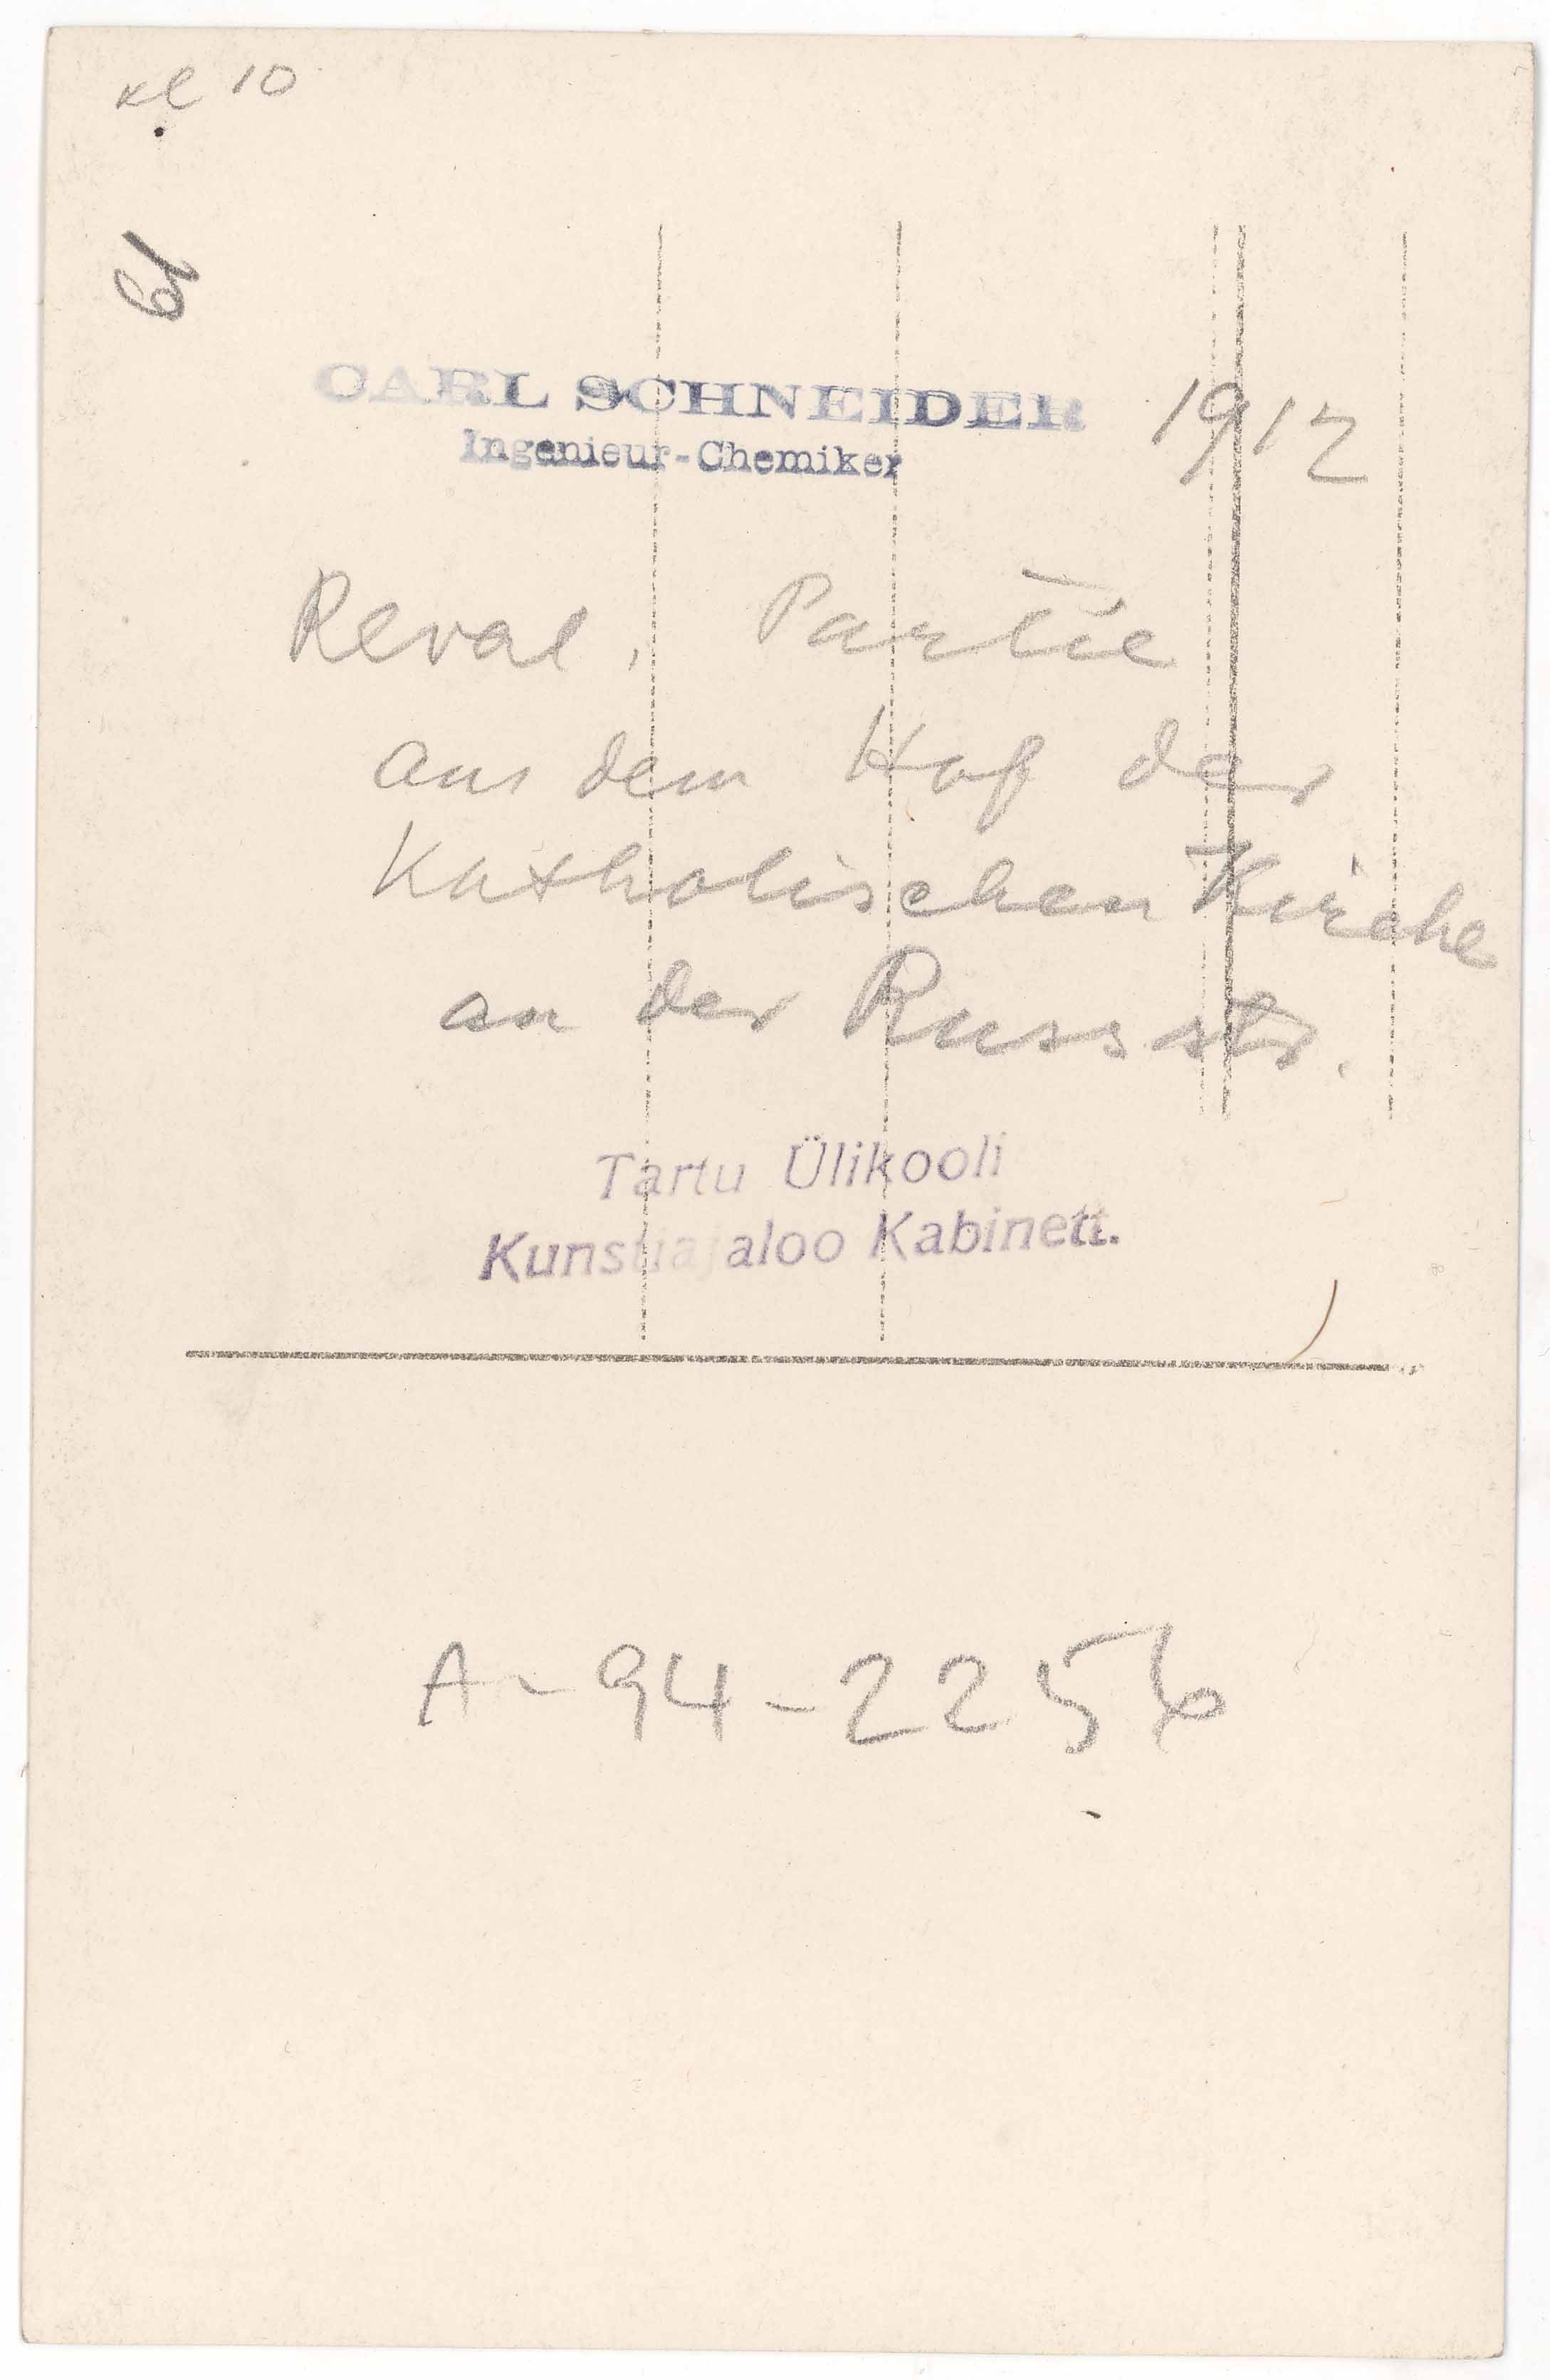 kl 10
CARL SCHNEIDER
Ingenieur-Chemiker
1912
Reval, Partie
aus dem Hof der
Katholischen Kirche
an der Russ str.
Tartu Ülikooli
Kunstiajaloo Kabinett.
A-94-2256